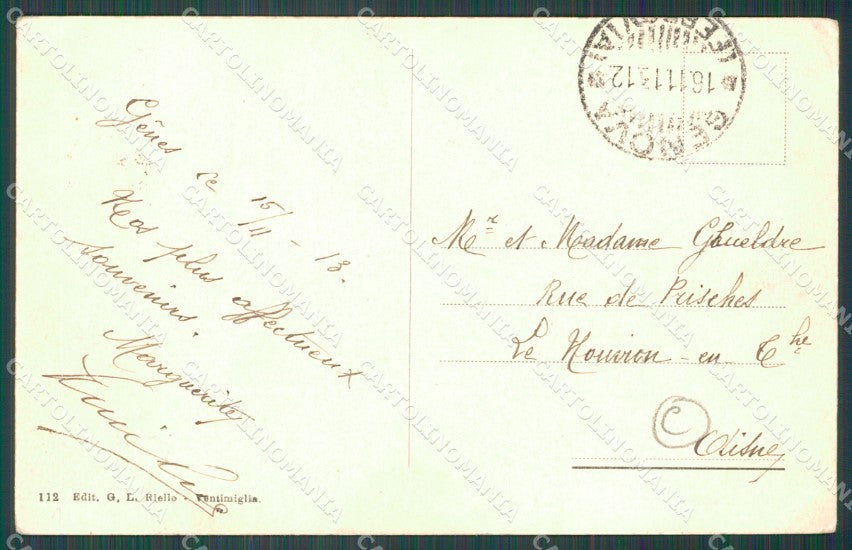 Gênes ce 15/11 - 13.
Nos plus affectueux
souvenirs.
Marguerite
112 Edit. G. L. Riello - Ventimiglia.
GENOVA
16.11.13.12
(FERROVIA)
Mr et Madame Ghueldre
Rue de Prisches
Le Nouvion - en Che
Aisne
C
CARTOLINOMANIA